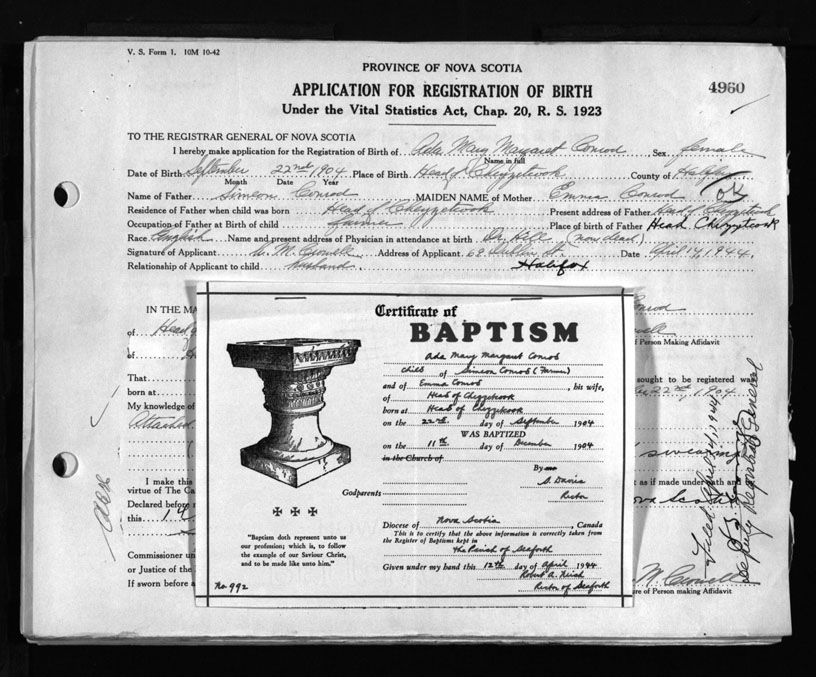 V. S. Form 1. 10M 10-42
PROVINCE OF NOVA SCOTIA
APPLICATION FOR REGISTRATION OF BIRTH
4960
Under the Vital Statistics Act, Chap. 20, R. S. 1923
TO THE REGISTRAR GENERAL OF NOVA SCOTIA
I hereby make application for the Registration of Birth of Ada Mary Margaret Conrod Sex female
Name in full
Date of Birth September 22nd 1904 Place of Birth Head of Chezzetcook County of Halifax
Month Date Year
Name of Father Simeon Conrod MAIDEN NAME of Mother Emma Conrod
Residence of Father when child was born Head of Chezzetcook Present address of Father Head of Chezzetcook
Occupation of Father at Birth of child farmer Place of birth of Father Head Chezzetcook
Race English Name and present address of Physician in attendance at birth Dr. Hill (now dead)
Signature of Applicant W. M. Crowell Address of Applicant 68 Dublin St. Date April 14, 1944.
Relationship of Applicant to child husband Halifax
IN THE MA
of Head
of
of Person Making Affidavit
That
sought to be registered was
born at
22nd, 1904
My knowledge of
Attached
I make this
as if made under oath and
virtue of The Ca
Nova Scotia
Declared before
this 14
Commissioner un
or Justice of the
M Crowell
If sworn before a
ure of Person making Affidavit
Filed April 14, 1944
Deputy Registrar General
Certificate of
BAPTISM
Ada Mary Margaret Conrod
child of Simeon Conrod (Farmer)
and of Emma Conrod, his wife,
of Head of Chezzetcook
born at Head of Chezzetcook
on the 22nd. day of September 1904
WAS BAPTIZED
on the 11th day of December 1904
in the Church of
By me
S. Davis
Rector
Godparents
Diocese of Nova Scotia, Canada
This is to certify that the above information is correctly taken
from the Register of Baptisms kept in
the Parish of Seaforth
Given under my hand this 12th day of April 1944
Robert A.
Rector of Seaforth
"Baptism doth represent unto us
our profession; which is, to follow
the example of our Saviour Christ,
and to be made like unto him."
No. 992